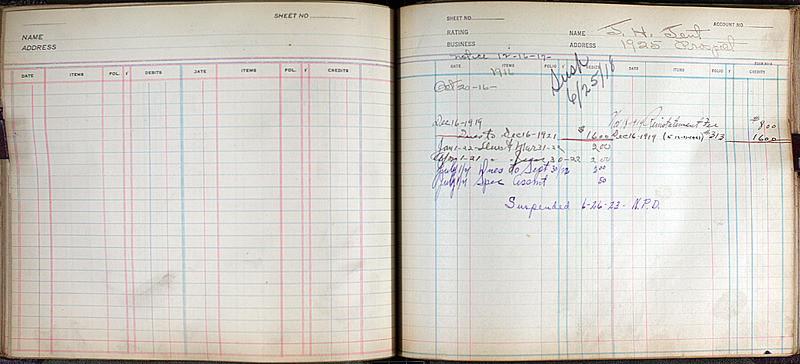 SHEET NO.
NAME
ADDRESS
DATE ITEMS FOL. DEBITS DATE ITEMS FOL. CREDITS
SHEET NO.
ACCOUNT NO.
RATING
NAME J. H. Tent
BUSINESS
ADDRESS 1925 Prospect
notice 12-16-17-
DATE ITEMS FOLIO DEBITS DATE ITEMS FOLIO CREDITS
1916
Susp
6/25/18
Oct 20-16-
Dec 16-1919
Reinstatement Fee $8.00
Dues to Dec 16-1921 $16.00 Dec 16-1919 #313 16.00
Jan 1-22 Dues to Mar 31-22 2.00
30-22 2.00
July 1/22 Dues to Sept 30/22 2.00
July 1/22 Spec Assmt 50
Suspended 6-26-23- N.P.D.